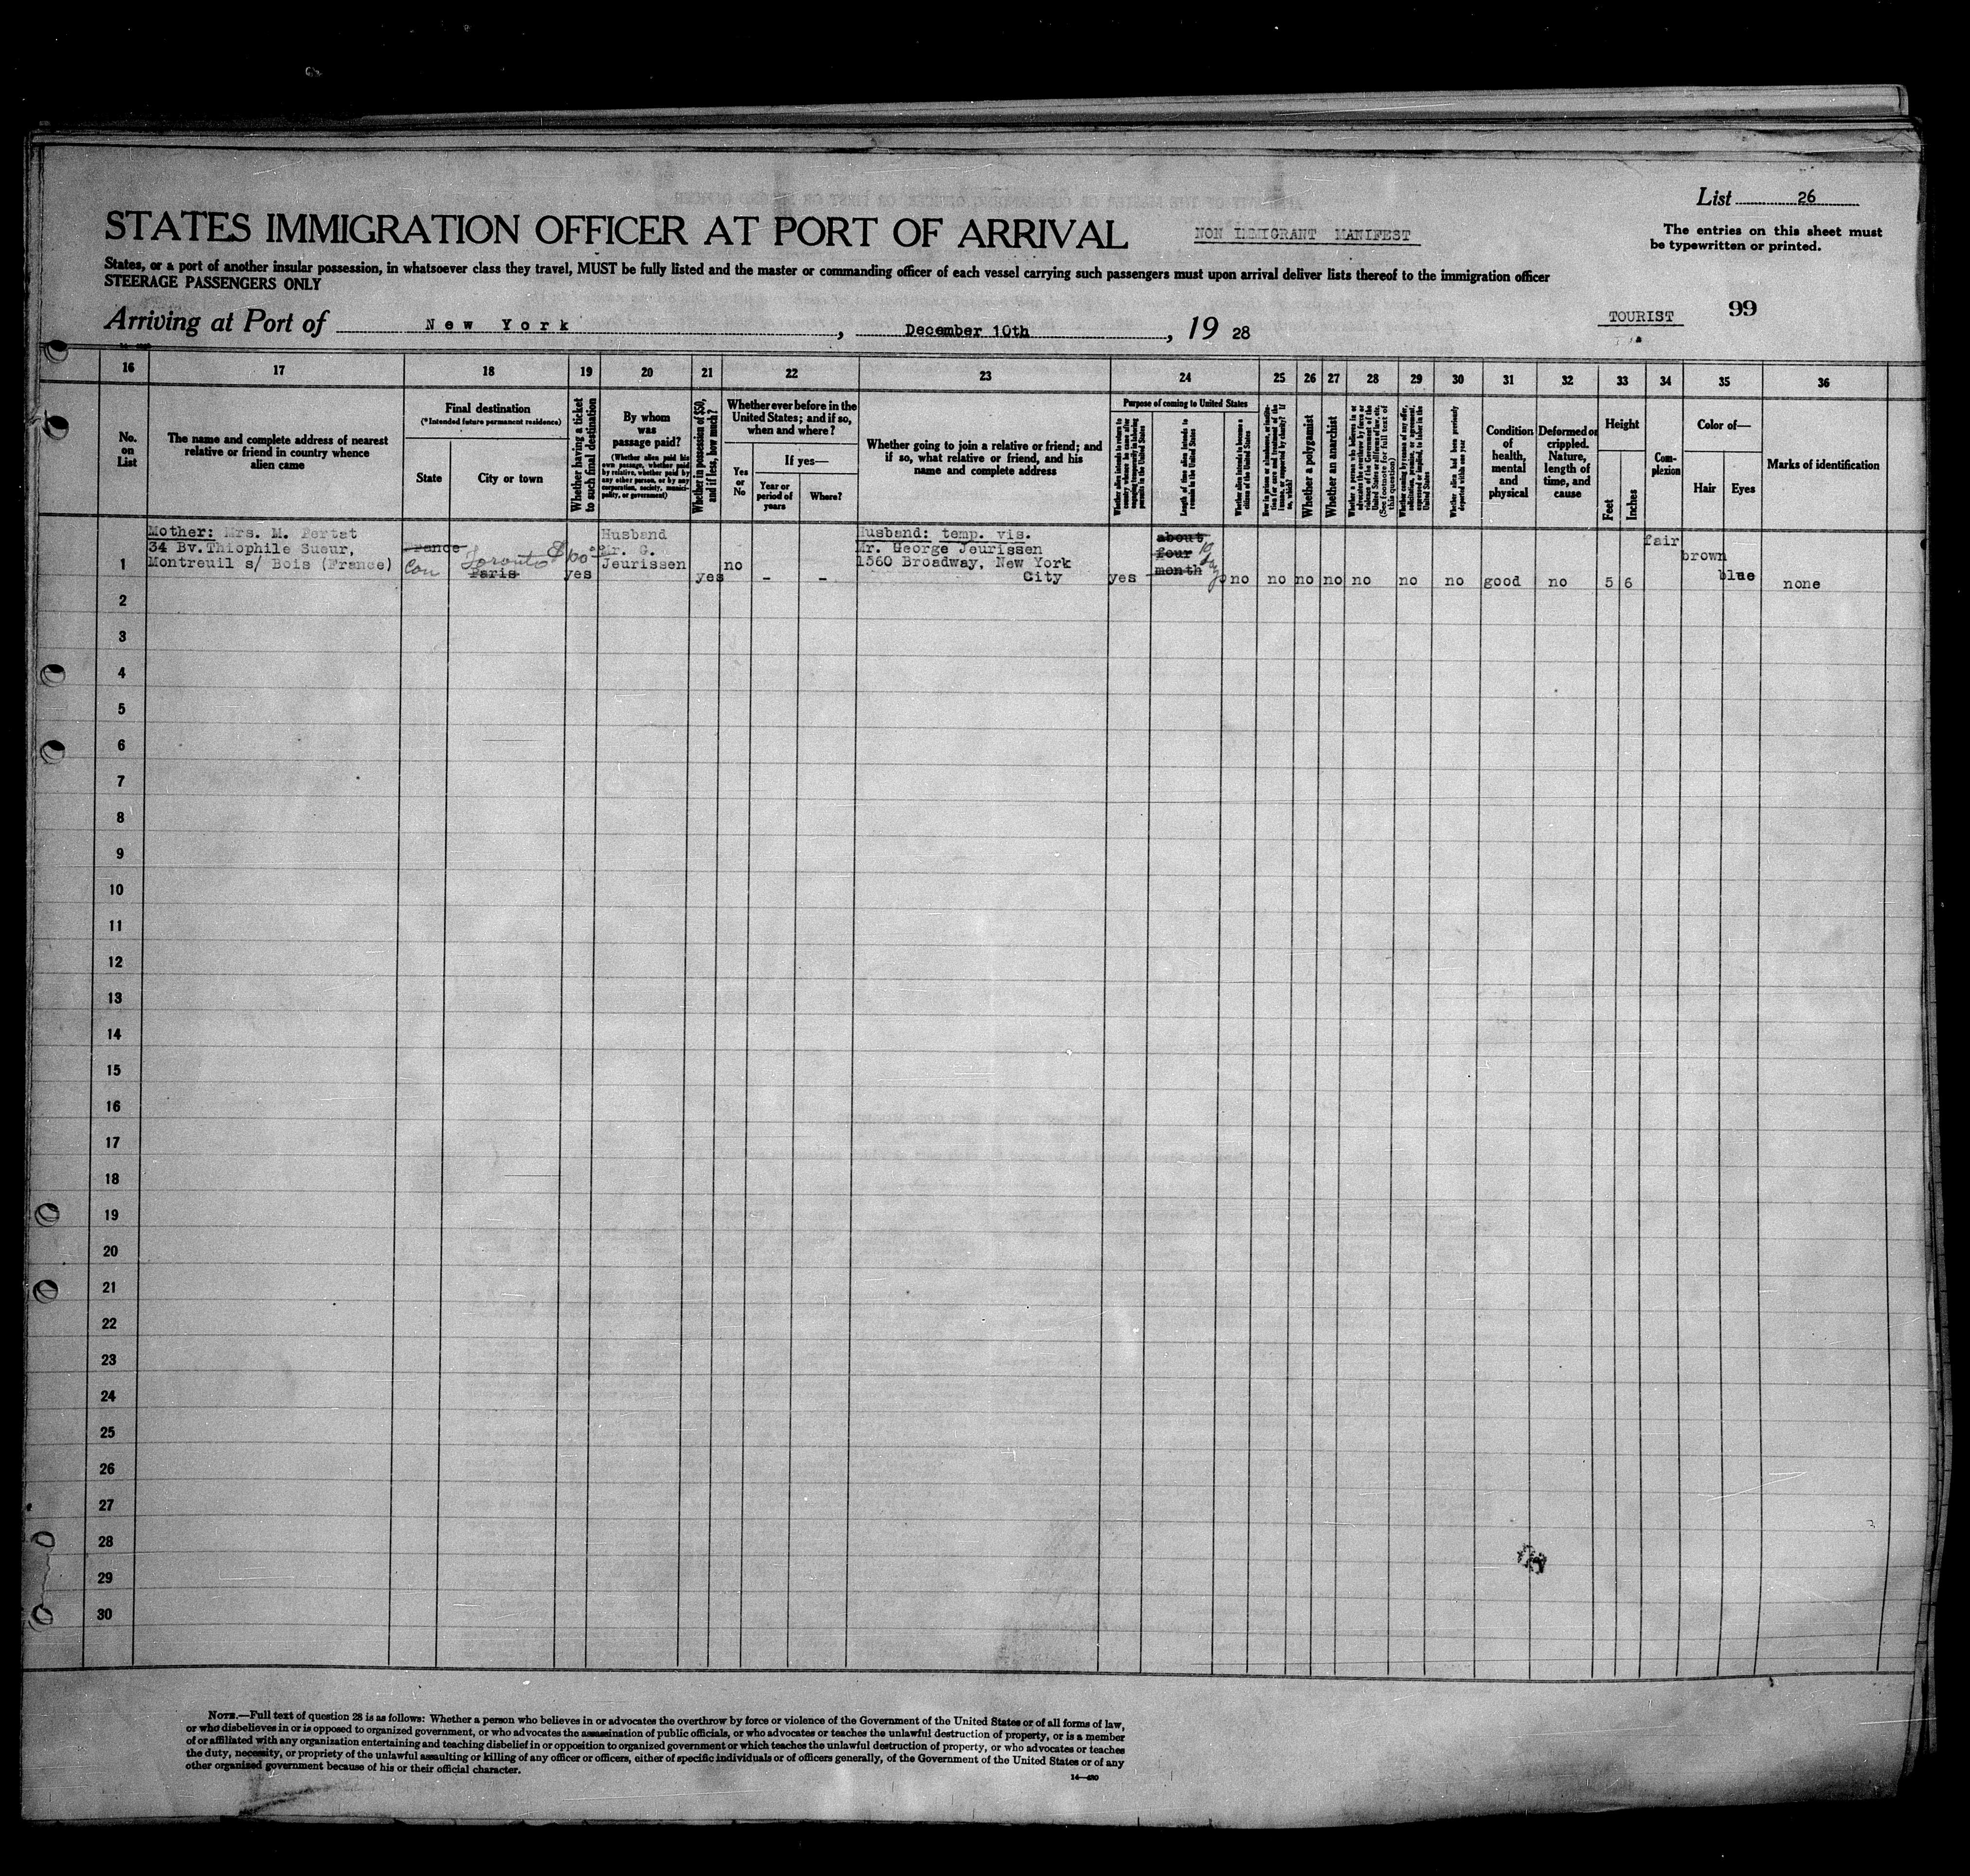 List 26
STATES IMMIGRATION OFFICER AT PORT OF ARRIVAL
NON IMMIGRANT MANIFEST
The entries on this sheet must
be typewritten or printed.
States, or a port of another insular possession, in whatsoever class they travel, MUST be fully listed and the master or commanding officer of each vessel carrying such passengers must upon arrival deliver lists thereof to the immigration officer
STEERAGE PASSENGERS ONLY
Arriving at Port of New York, December 10th, 19 28
TOURIST
99
16 17 18 19 20 21 22 23 24 25 26 27 28 29 30 31 32 33 34 35 36
No. on List
The name and complete address of nearest
relative or friend in country whence
alien came
Final destination
(*Intended future permanent residence)
State
City or town
Whether having a ticket
to such final destination
By whom
was
passage paid?
(Whether alien paid his
own passage, whether paid
by relative, whether paid by
any other person, or by any
corporation, society, munici-
pality, or government)
Whether in possession of $50,
and if less, how much?
Whether ever before in the
United States; and if so,
when and where?
Yes or No
If yes—
Year or
period of
years
Where?
Whether going to join a relative or friend; and
if so, what relative or friend, and his
name and complete address
Purpose of coming to United States
Length of time alien intends to
remain in the United States
Whether alien intends to become a
citizen of the United States
Whether a polygamist
Whether an anarchist
(See footnote for full text of
this question)
Whether alien had been previously
deported within one year
Condition
of
health,
mental
and
physical
Deformed or
crippled.
Nature,
length of
time, and
cause
Height
Feet
Inches
Com-
plexion
Color of—
Hair
Eyes
Marks of identification
1
Mother: Mrs. M. Pertat
34 Bv. Thiophile Sueur,
Montreuil s/ Bois (France)
France
Can
Toronto
Paris
$100
yes
Husband
Mr. G.
Jeurissen
yes
no
- -
Husband: temp. vis.
Mr. George Jeurissen
1560 Broadway, New York
City
yes
about
four
month
10
days
no no no no no no no good no 5 6 fair brown blue none
2
3
4
5
6
7
8
9
10
11
12
13
14
15
16
17
18
19
20
21
22
23
24
25
26
27
28
29
30
NOTE.—Full text of question 28 is as follows: Whether a person who believes in or advocates the overthrow by force or violence of the Government of the United States or of all forms of law,
or who disbelieves in or is opposed to organized government, or who advocates the assassination of public officials, or who advocates or teaches the unlawful destruction of property, or is a member
of or affiliated with any organization entertaining and teaching disbelief in or opposition to organized government or which teaches the unlawful destruction of property, or who advocates or teaches
the duty, necessity, or propriety of the unlawful assaulting or killing of any officer or officers, either of specific individuals or of officers generally, of the Government of the United States or of any
other organized government because of his or their official character.